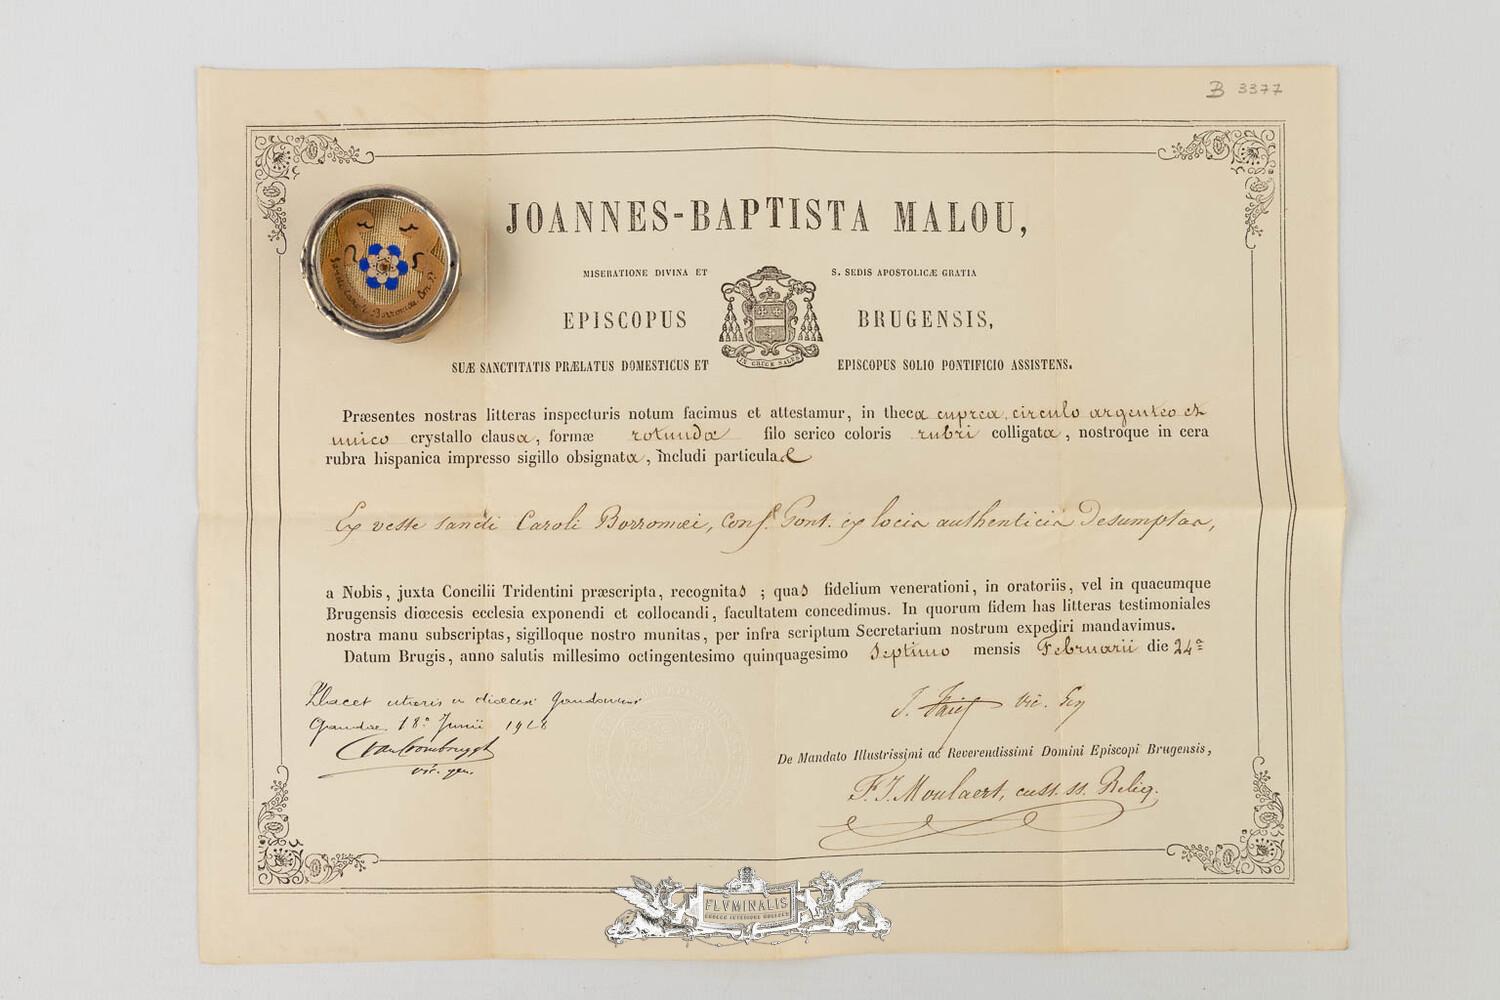 B 3377
JOANNES-BAPTISTA MALOU,
MISERATIONE DIVINA ET S. SEDIS APOSTOLICÆ GRATIA
EPISCOPUS BRUGENSIS,
IN CRUCE SALUS
SUÆ SANCTITATIS PRÆLATUS DOMESTICUS ET EPISCOPUS SOLIO PONTIFICIO ASSISTENS.
Sancti Caroli Borromæi
Præsentes nostras litteras inspecturis notum facimus et attestamur, in theca cuprea, circulo argenteo et
unico crystallo clausa, formæ rotundæ filo serico coloris rubri colligata, nostroque in cera
rubra hispanica impresso sigillo obsignata, includi particulae
Ex veste sancti Caroli Borromæi, Conf. Pont. ex locis authenticis desumptas,
a Nobis, juxta Concilii Tridentini præscripta, recognitas ; quas fidelium venerationi, in oratoriis, vel in quacumque
Brugensis diœcesis ecclesia exponendi et collocandi, facultatem concedimus. In quorum fidem has litteras testimoniales
nostra manu subscriptas, sigilloque nostro munitas, per infra scriptum Secretarium nostrum expediri mandavimus.
Datum Brugis, anno salutis millesimo octingentesimo quinquagesimo septimo mensis Februarii die 24ª
Placet in diœcesi Gandavensi
Gandae 18ª Junii 1928
Van Crombrugge
vic. gen.
J. Faict vic. Gen
De Mandato Illustrissimi ac Reverendissimi Domini Episcopi Brugensis,
F. J. Moulaert, cust. ss. Reliq.
FLVMINALIS